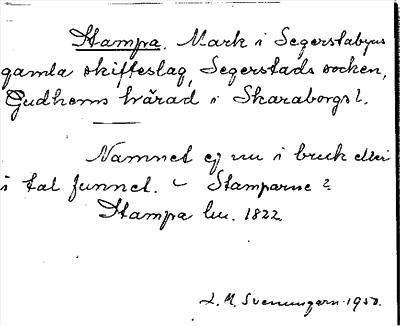 Stampa. Mark i Segerstabyns
gamla skifteslag, Segerstads socken,
Gudhems härad i Skaraborgs l.
Namnet ej nu i bruk eller
i tal funnet. – Stamparne?
Stampa lu. 1822
L. M. Svenungsson 1950.